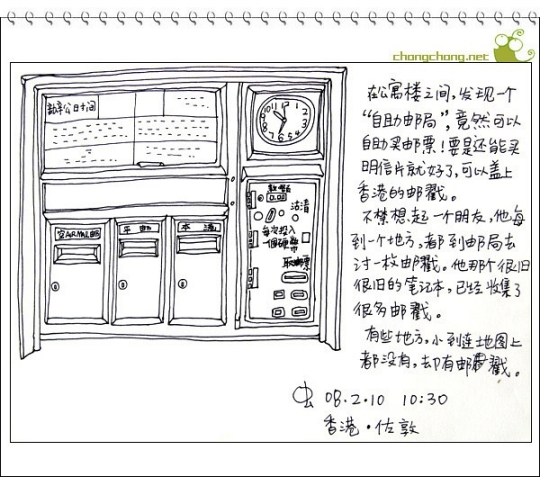 chongchong.net
在公寓楼之间，发现一个
“自助邮局”，竟然可以
自助买邮票！要是还能买
明信片就好了，可以盖上
香港的邮戳。
不禁想起一个朋友，他每
到一个地方，都到邮局去
讨一枚邮戳。他那个很旧
很旧的笔记本，已经收集了
很多邮戳。
有些地方，小到连地图上
都没有，却有邮戳。
虫 08.2.10 10:30
香港·佐敦
办公时间
空邮 AIRMAIL
平邮
本港
沽清
0.00
每次投入
一個硬幣
取郵票